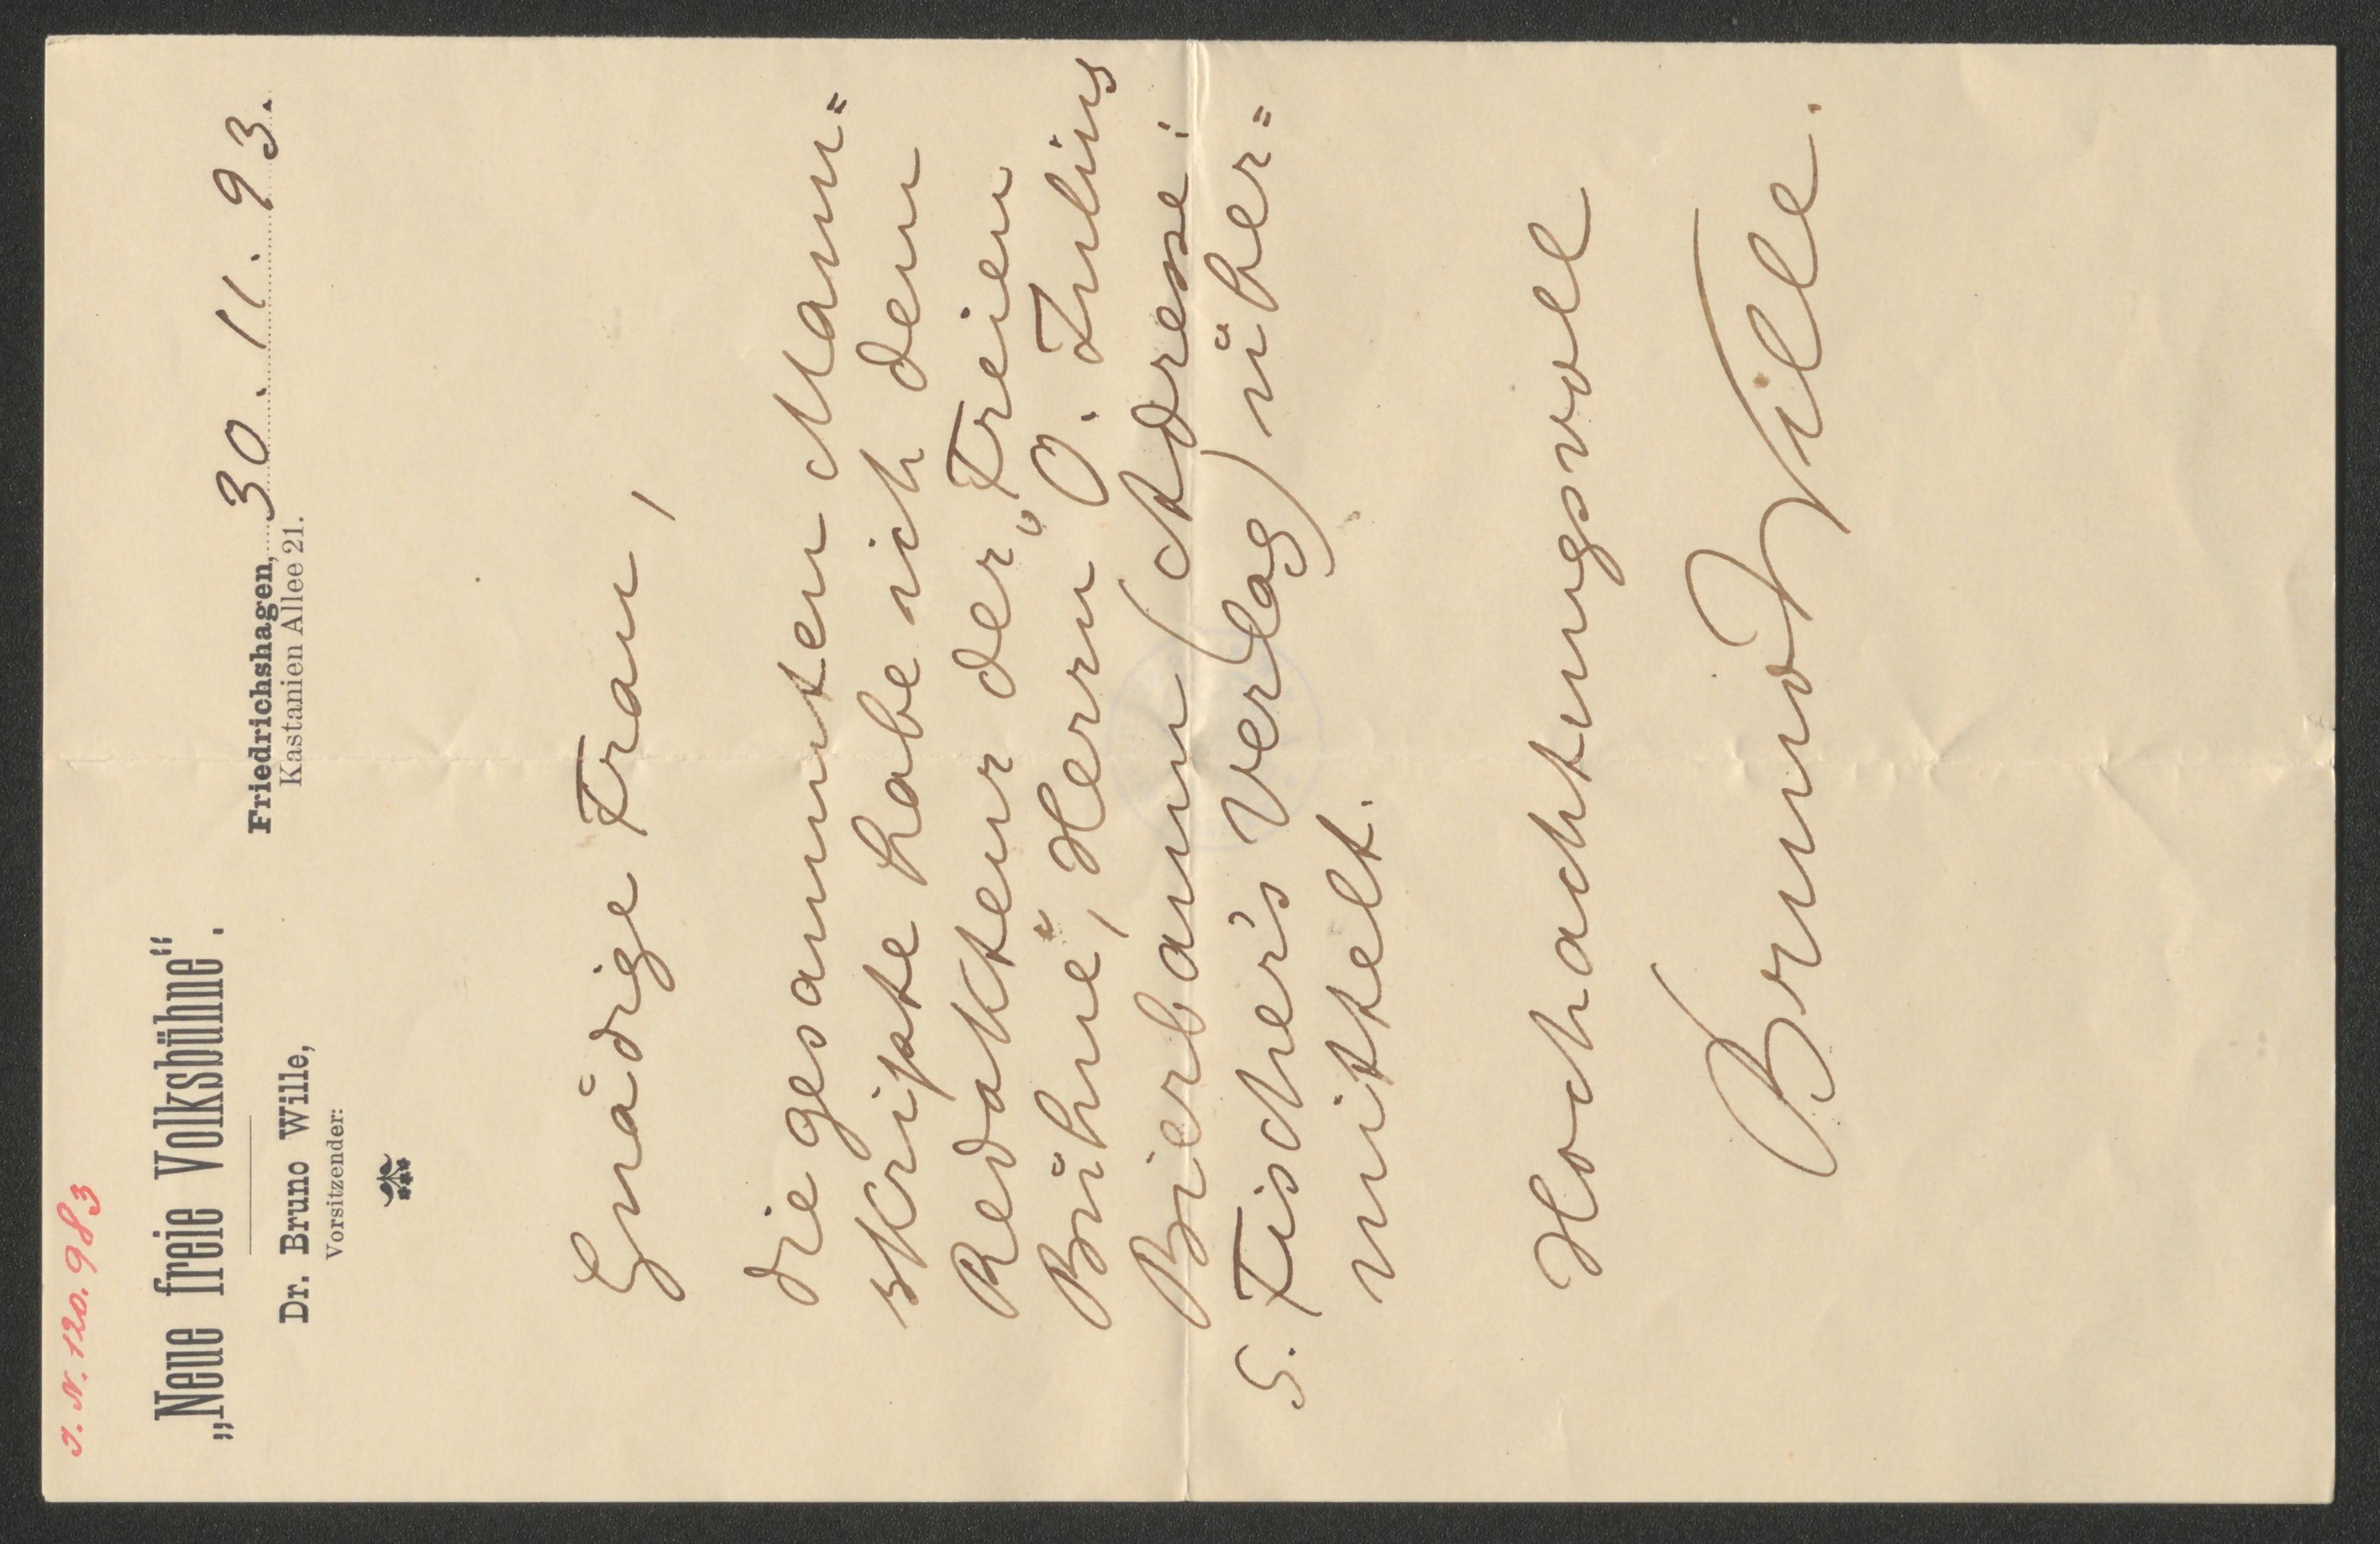 J. N. 120.983
„Neue freie Volksbühne“.
Dr. Bruno Wille,
Vorsitzender:
Friedrichshagen, 30. 11. 93.
Kastanien Allee 21.
Gnädige Frau,
die gesammten Manu=
skripte habe ich dem
Redakteur der „Freien
Bühne“, Herrn O. Julius
Bierbaum (Adresse:
S. Fischer's Verlag) über=
mittelt.
Hochachtungsvoll
Bruno Wille.